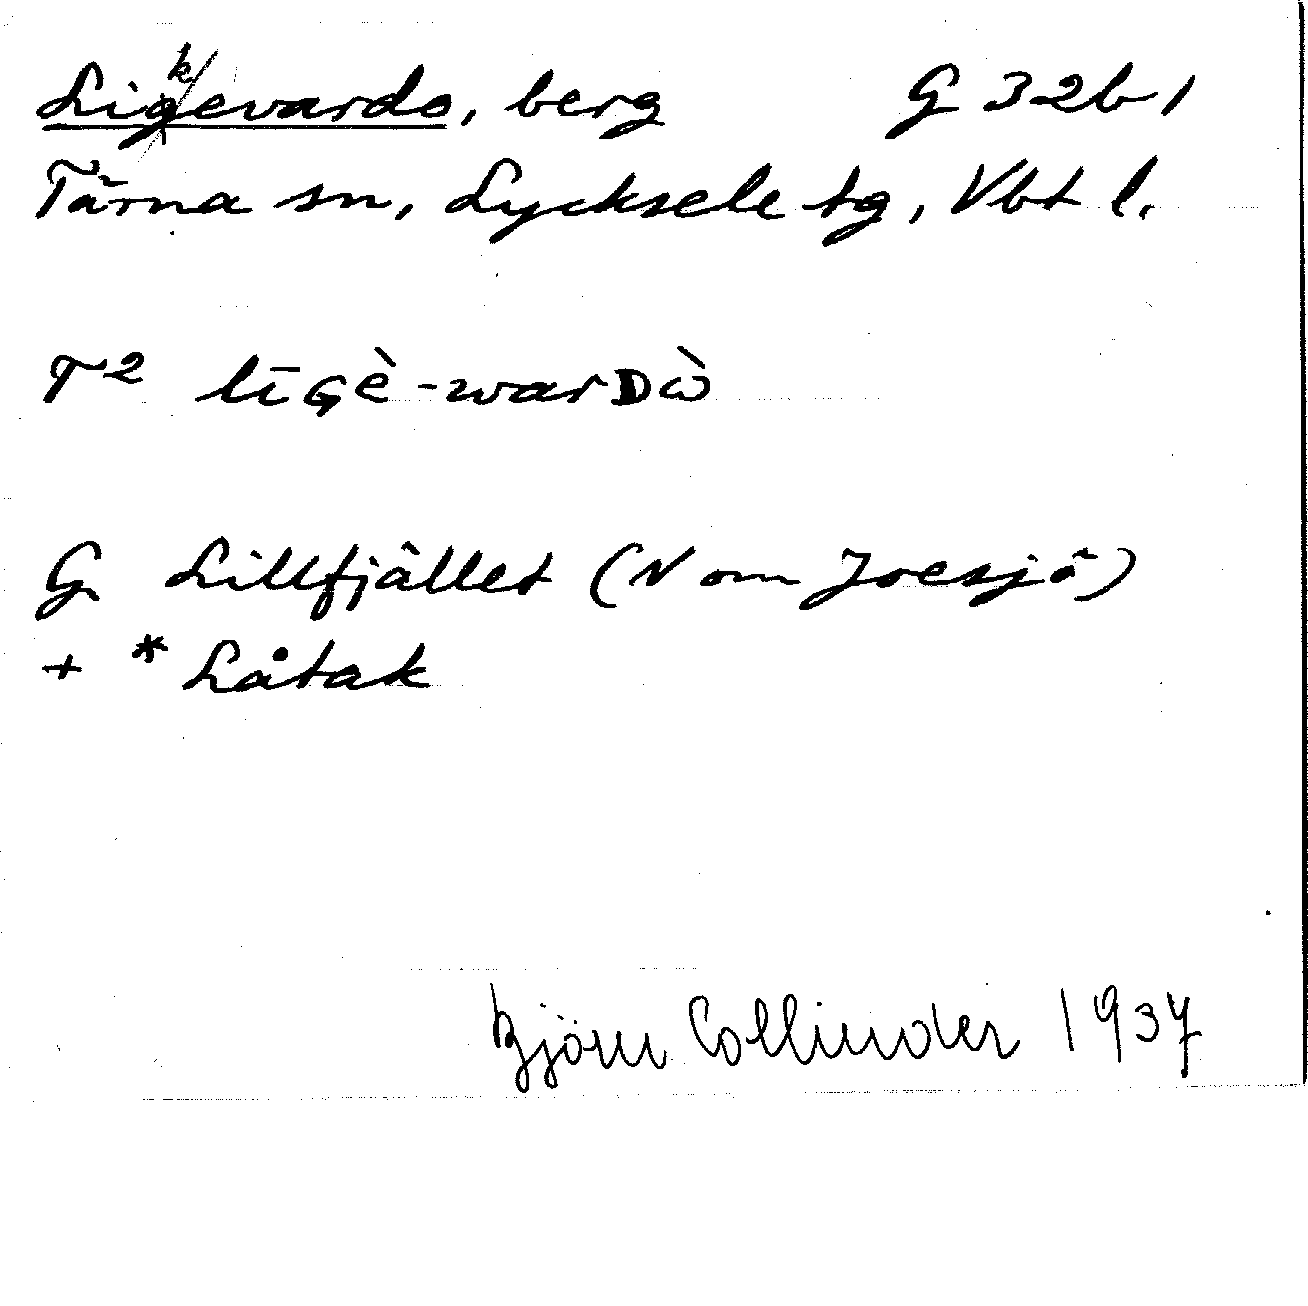 Ligevardo, berg G 32b1
k/
Tärna sn, Lycksele tg, Vbt l.
T² līGè-warDὼ
G Lillfjället (N om Joesjö)
+ *Låtak
Björn Collinder 1937